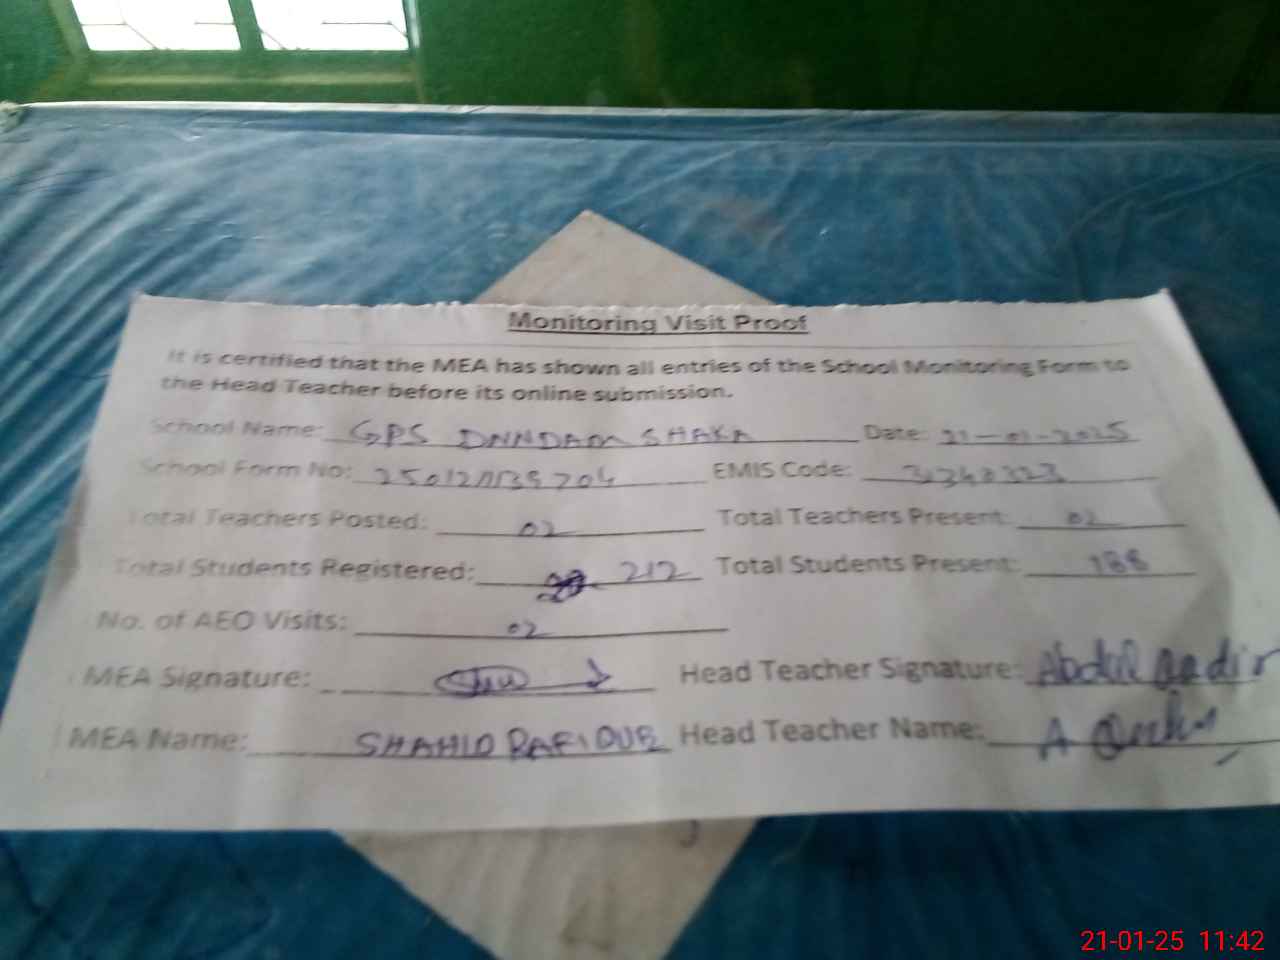 Monitoring Visit Proof
It is certified that the MEA has shown all entries of the School Monitoring Form to
the Head Teacher before its online submission.
School Name: GPS DNNDAM SHAKA Date: 21-01-2025
School Form No: EMIS Code:
Total Teachers Posted: 02 Total Teachers Present: 02
Total Students Registered: 212 Total Students Present: 188
No. of AEO Visits: 02
MEA Signature: Head Teacher Signature: Abdul Qadir
MEA Name: SHAHID RAFIQUE Head Teacher Name: A
21-01-25 11:42